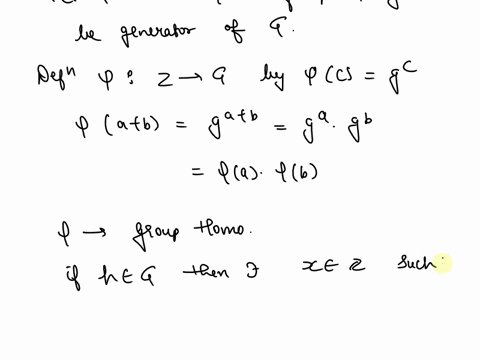 be generator of G.
Defⁿ φ : Z → G by φ(c) = g^c
φ (a+b) = g^{a+b} = g^a · g^b
= φ(a) · φ(b)
φ → group Homo.
if h ∈ G then ∃ x ∈ Z such